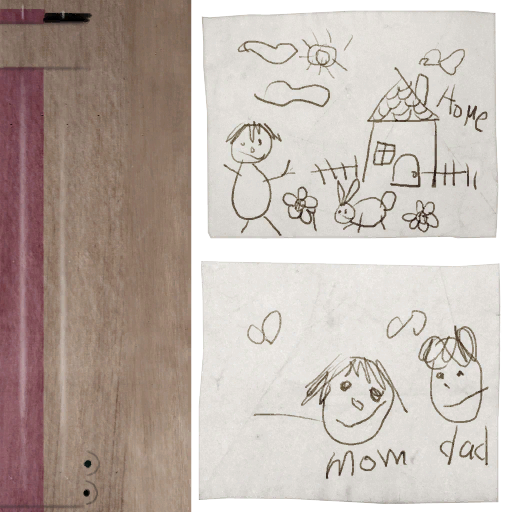 Home
mom dad